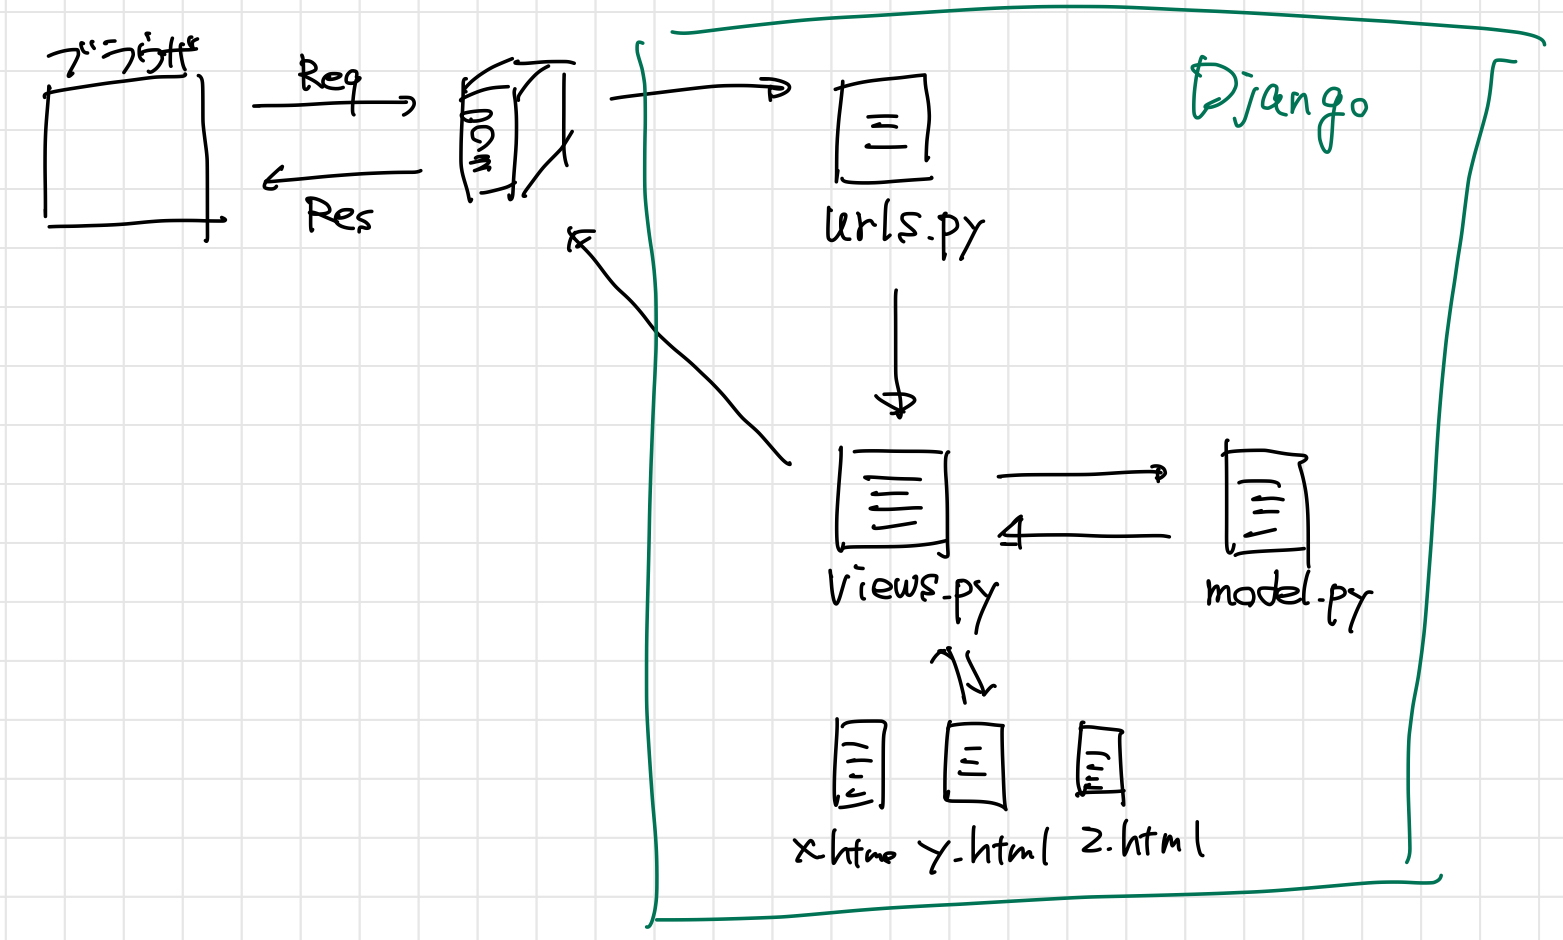 ブラウザ
Req
Res
Django
urls.py
views.py
model.py
x.html
y.html
z.html